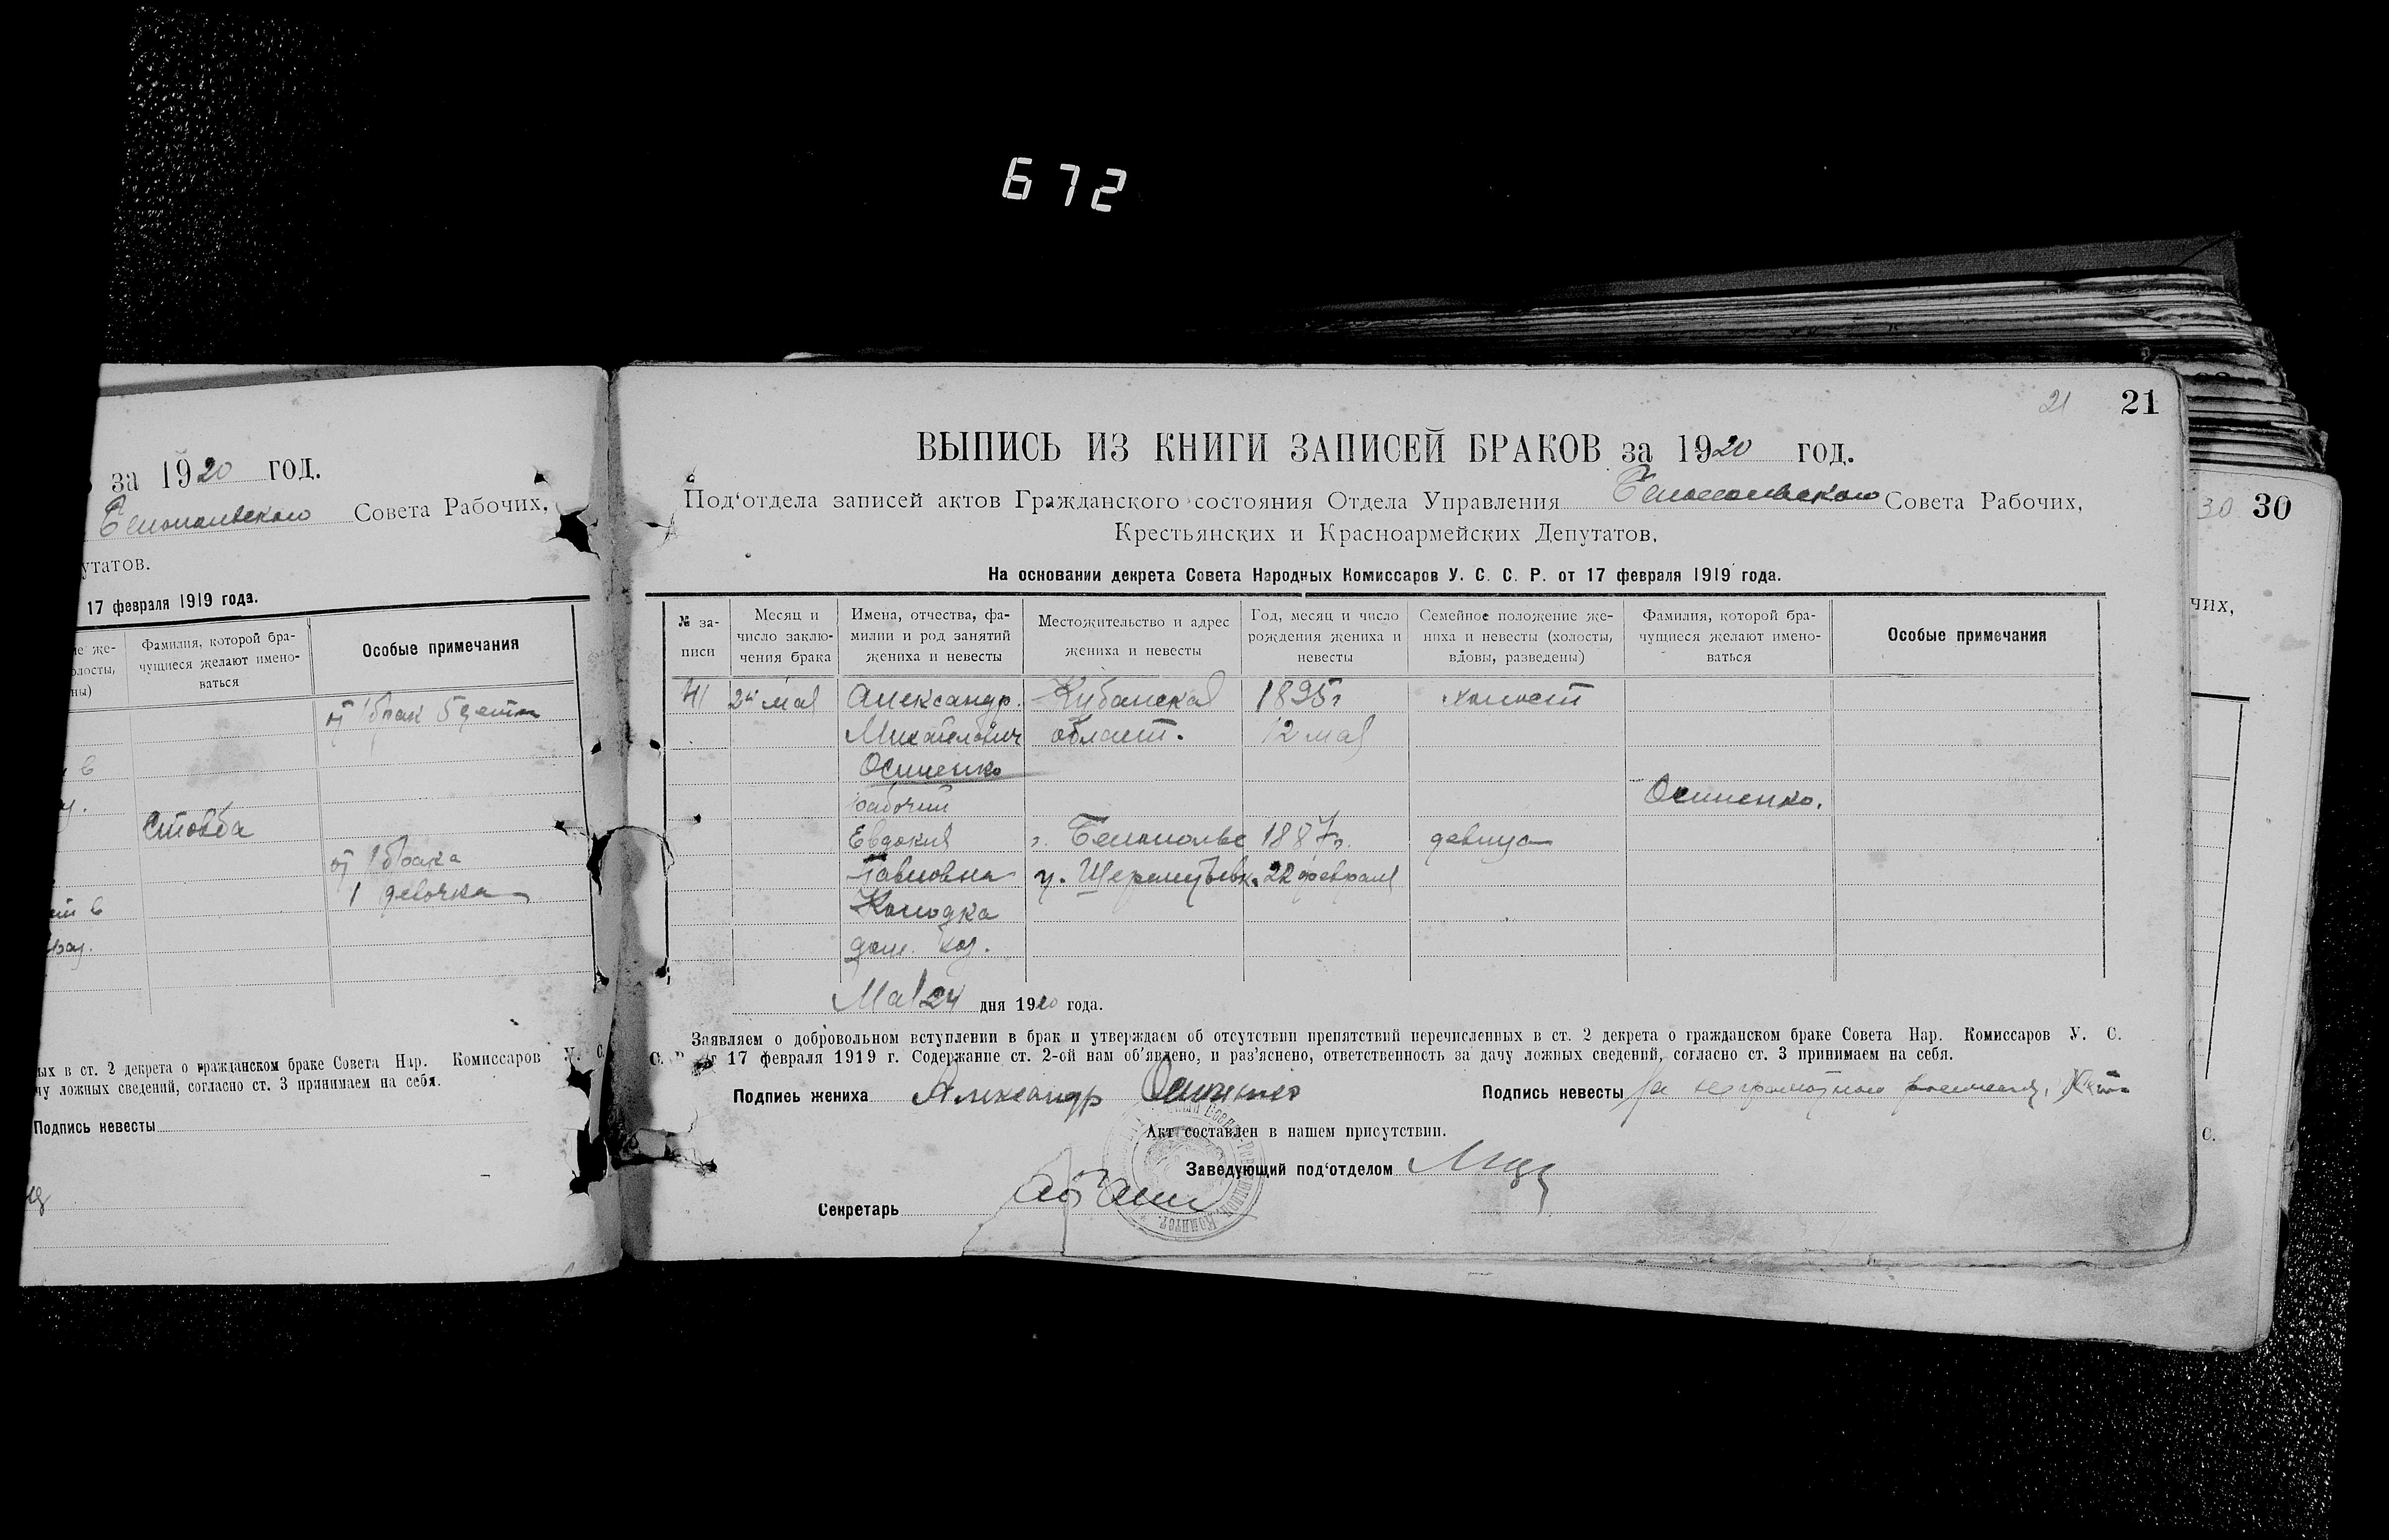 672
за 1920 год.
Белопольского Совета Рабочих,
утатов.
17 февраля 1919 года.
Фамилия, которой бра-
чущиеся желают имено-
ваться
Особые примечания
от 1 брак 5 детей
Стовба
от 1 брака
1 девочка
ых в ст. 2 декрета о гражданском браке Совета Нар. Комиссаров У. С.
чу ложных сведений, согласно ст. 3 принимаем на себя.
Подпись невесты
21 21
ВЫПИСЬ ИЗ КНИГИ ЗАПИСЕЙ БРАКОВ за 1920 год.
Под‘отдела записей актов Гражданского состояния Отдела Управления Белопольского Совета Рабочих,
Крестьянских и Красноармейских Депутатов.
На основании декрета Совета Народных Комиссаров У. С. С. Р. от 17 февраля 1919 года.
№ за-
писи
Месяц и
число заклю-
чения брака
Имена, отчества, фа-
милии и род занятий
жениха и невесты
Местожительство и адрес
жениха и невесты
Год, месяц и число
рождения жениха и
невесты
Семейное положение же-
ниха и невесты (холосты,
вдовы, разведены)
Фамилия, которой бра-
чущиеся желают имено-
ваться
Особые примечания
41 24 мая Александр. Кубанская 1895г холост
Михайлович област. 12 мая
Осипенко
рабочий Осипенко.
Евдокия г. Белополье 1887г. девица
Павловна у. Шереметьевк. 22 февраля
Колодка
дом. хоз.
Мая 24 дня 1920 года.
Заявляем о добровольном вступлении в брак и утверждаем об отсутствии препятствий перечисленных в ст. 2 декрета о гражданском браке Совета Нар. Комиссаров У. С.
С. Р. от 17 февраля 1919 г. Содержание ст. 2-ой нам об'явлено, и раз'яснено, ответственность за дачу ложных сведений, согласно ст. 3 принимаем на себя.
Подпись жениха Александр Осипенко
Подпись невесты За неграмотною
Акт составлен в нашем присутствии.
Заведующий под‘отделом
Секретарь
30 30
чих,
С.